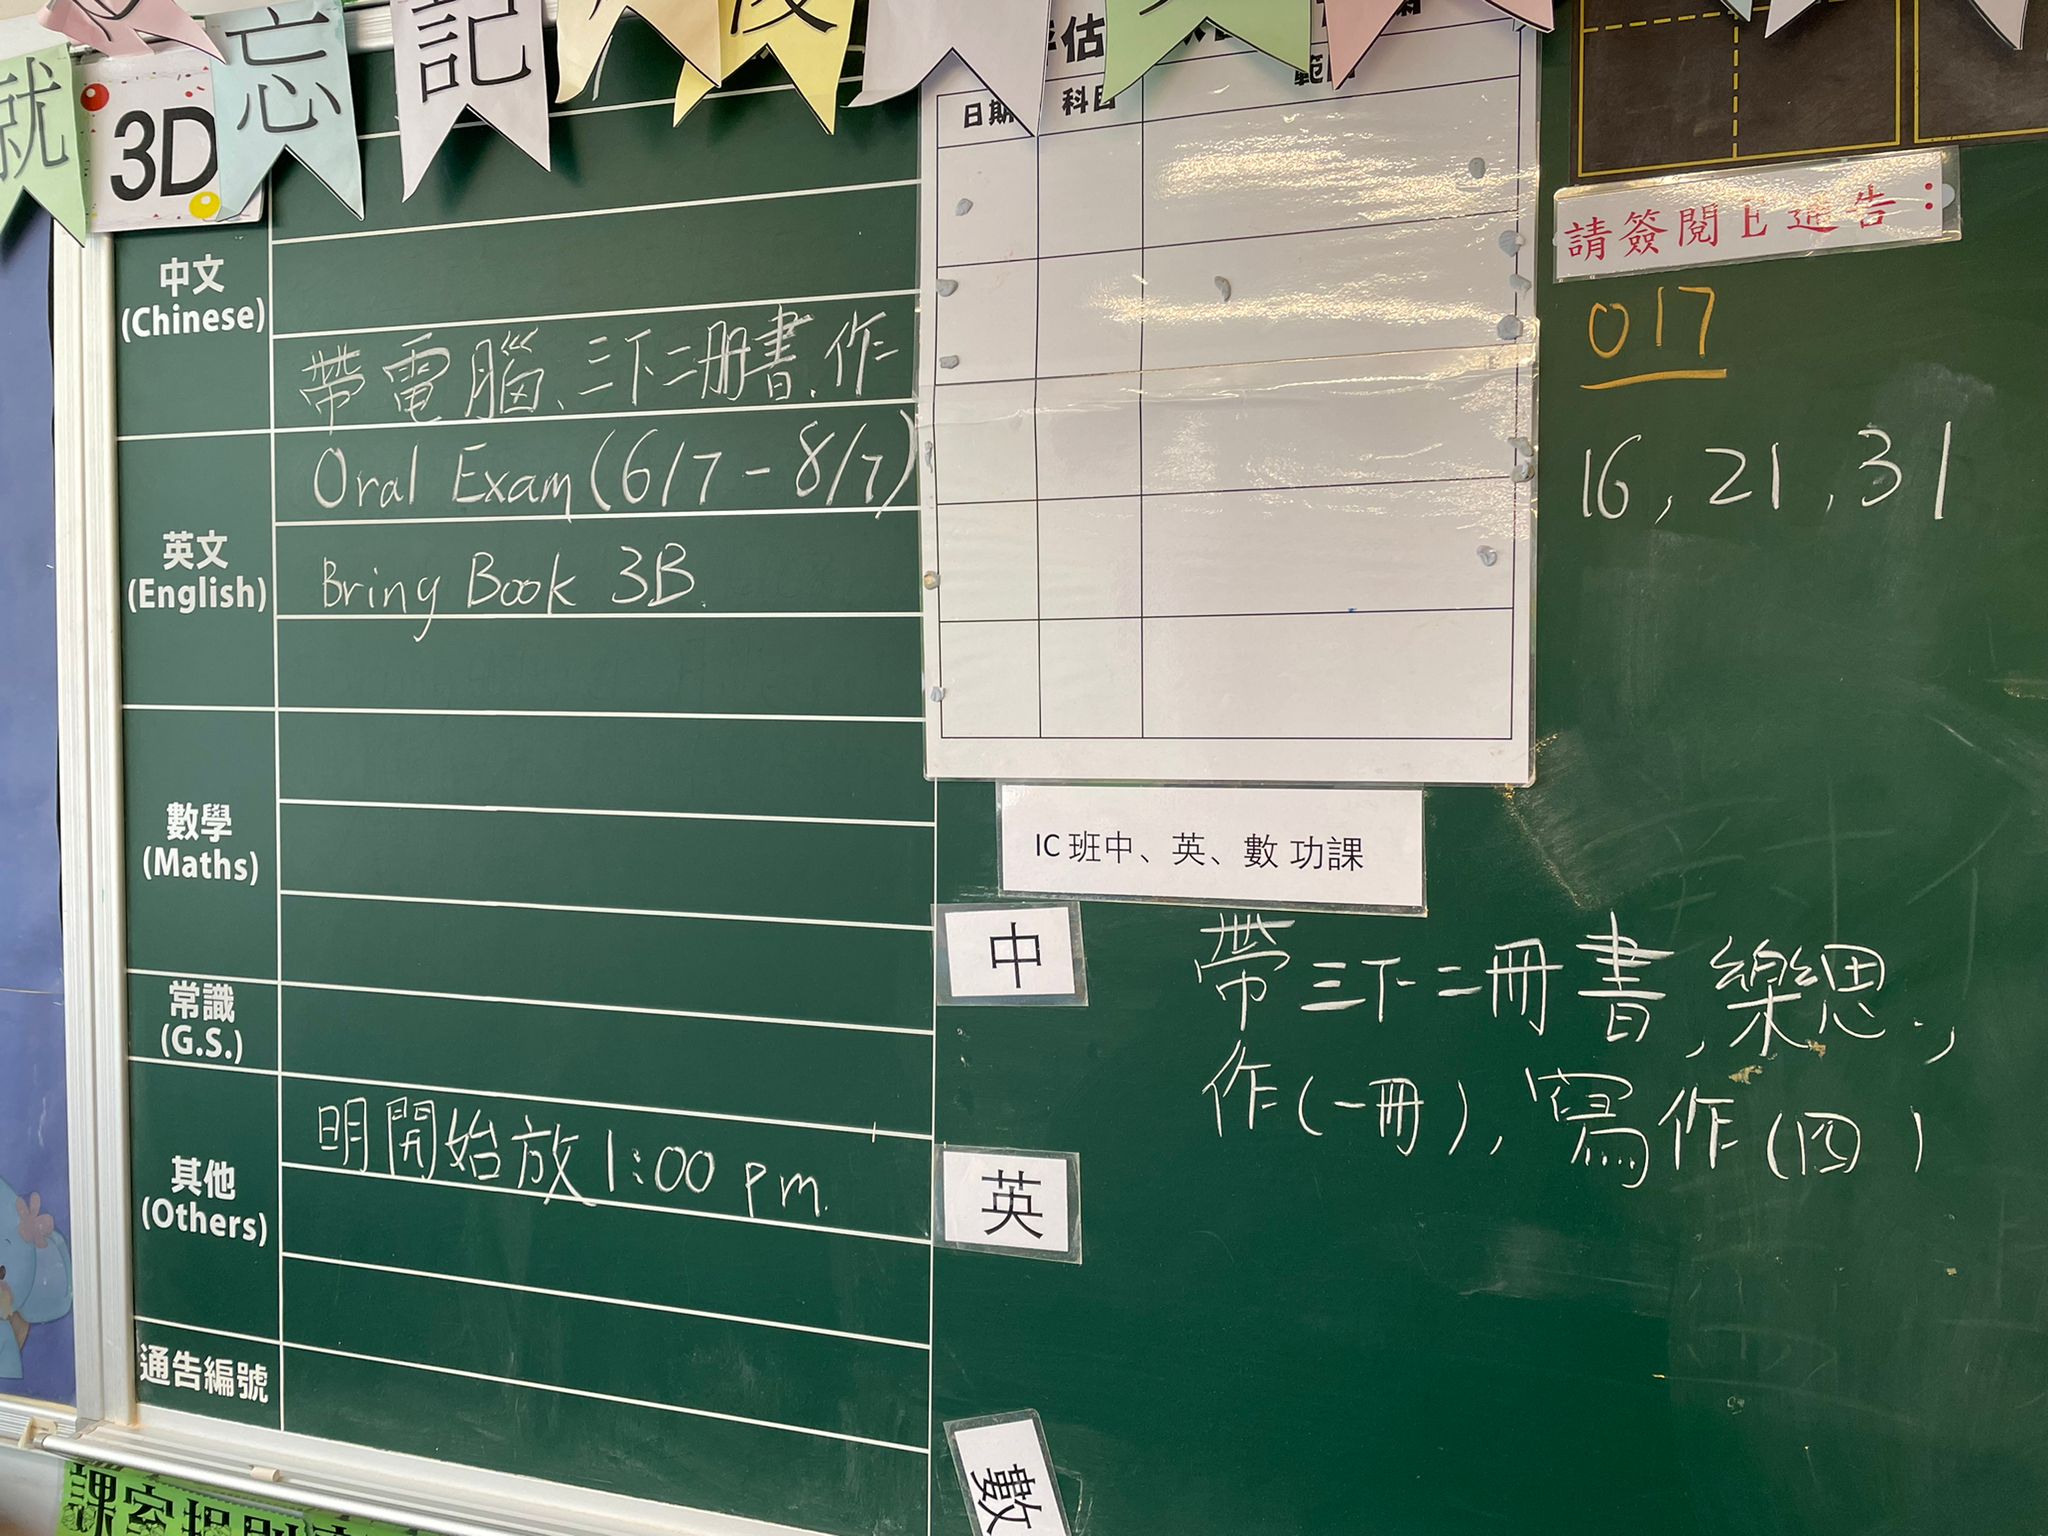 就
忘
記
3D
評估
範
日期
科目
請簽閱E通告：
017
16, 21, 31
中文
(Chinese)
帶電腦、三下二冊書、作
英文
(English)
Oral Exam (6/7 - 8/7)
Bring Book 3B.
數學
(Maths)
常識
(G.S.)
其他
(Others)
明開始放1:00 pm.
通告編號
IC 班中、英、數 功課
中
帶三下二冊書,樂思.,
作(一冊),寫作(四)
英
數
課室規則